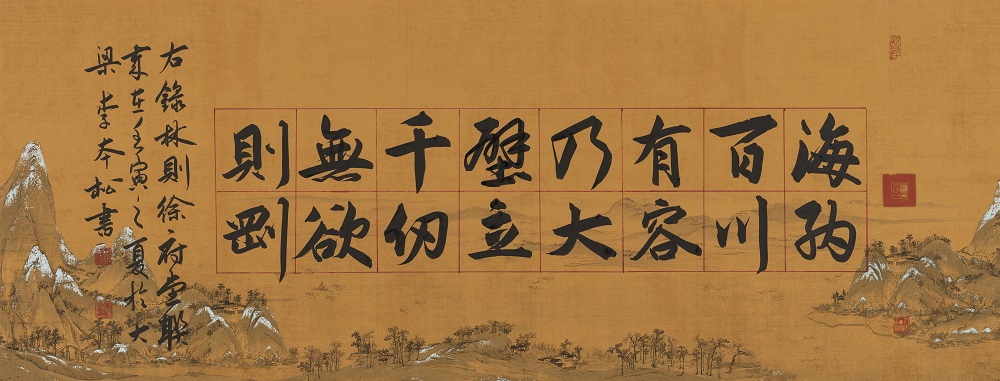 海納
百川
有容
乃大
壁立
千仞
無欲
則剛
右錄林則徐府堂聯
歲在壬寅之夏於大
梁李本松書